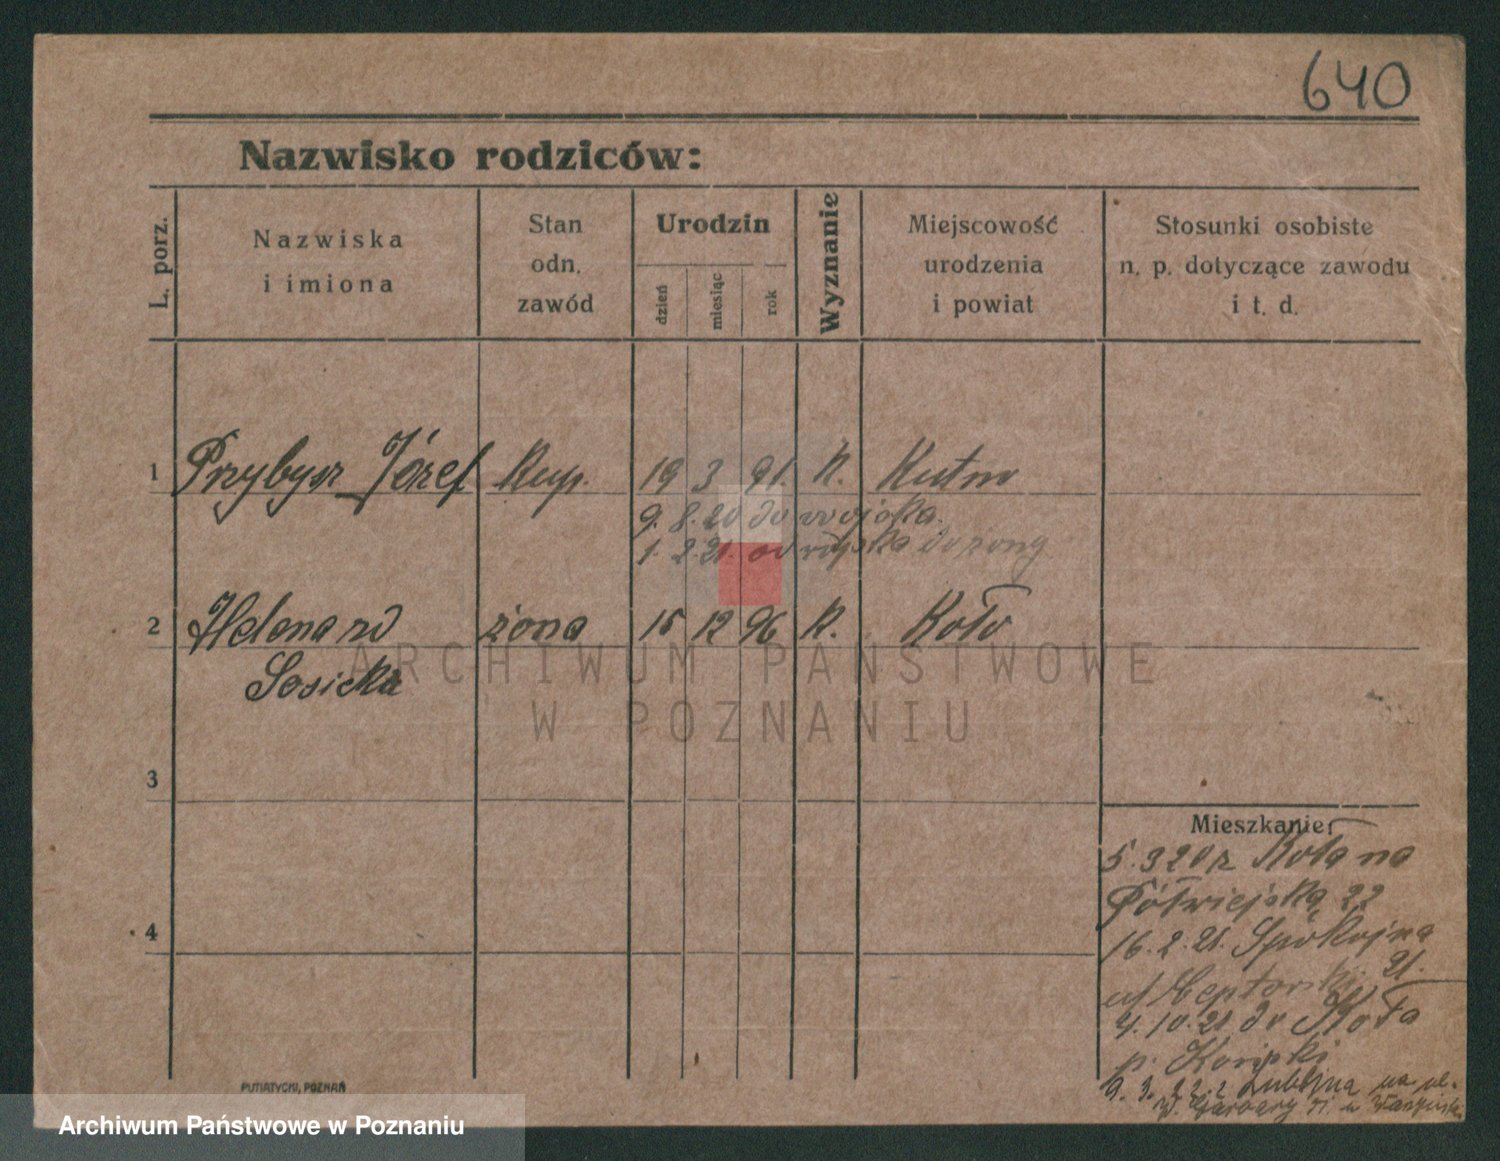 640
Nazwisko rodziców:
L. porz.
Nazwiska
i imiona
Stan
odn.
zawód
Urodzin
dzień
miesiąc
rok
Wyznanie
Miejscowość
urodzenia
i powiat
Stosunki osobiste
n. p. dotyczące zawodu
i t. d.
1 Przybysz Józef kup. 19 3 91. K. Kutno
9. 8. 20 do wojska.
1. 2. 21. od wojska do żony
2 Helena zd żona 15 12 96 K. Koło
Sosicka
3
4
Mieszkanie:
5. 3 20 z Koła na
Półwiejska 22
16. 2. 21. Spokojna
21.
4. 10. 21 do Koła
p.
9. 3. 22. z Lublina na ul.
W. Garbary 51. u
PUTIATYCKI, POZNAŃ
ARCHIWUM PAŃSTWOWE
W POZNANIU
Archiwum Państwowe w Poznaniu